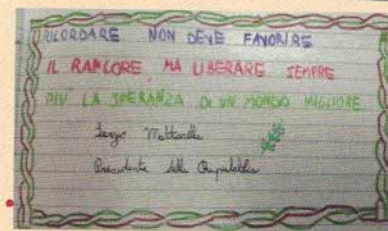 RICORDARE NON DEVE FAVORIRE
IL RANCORE MA LIBERARE SEMPRE
PIÙ LA SPERANZA DI UN MONDO MIGLIORE
Sergio Mattarella
Presidente della Repubblica